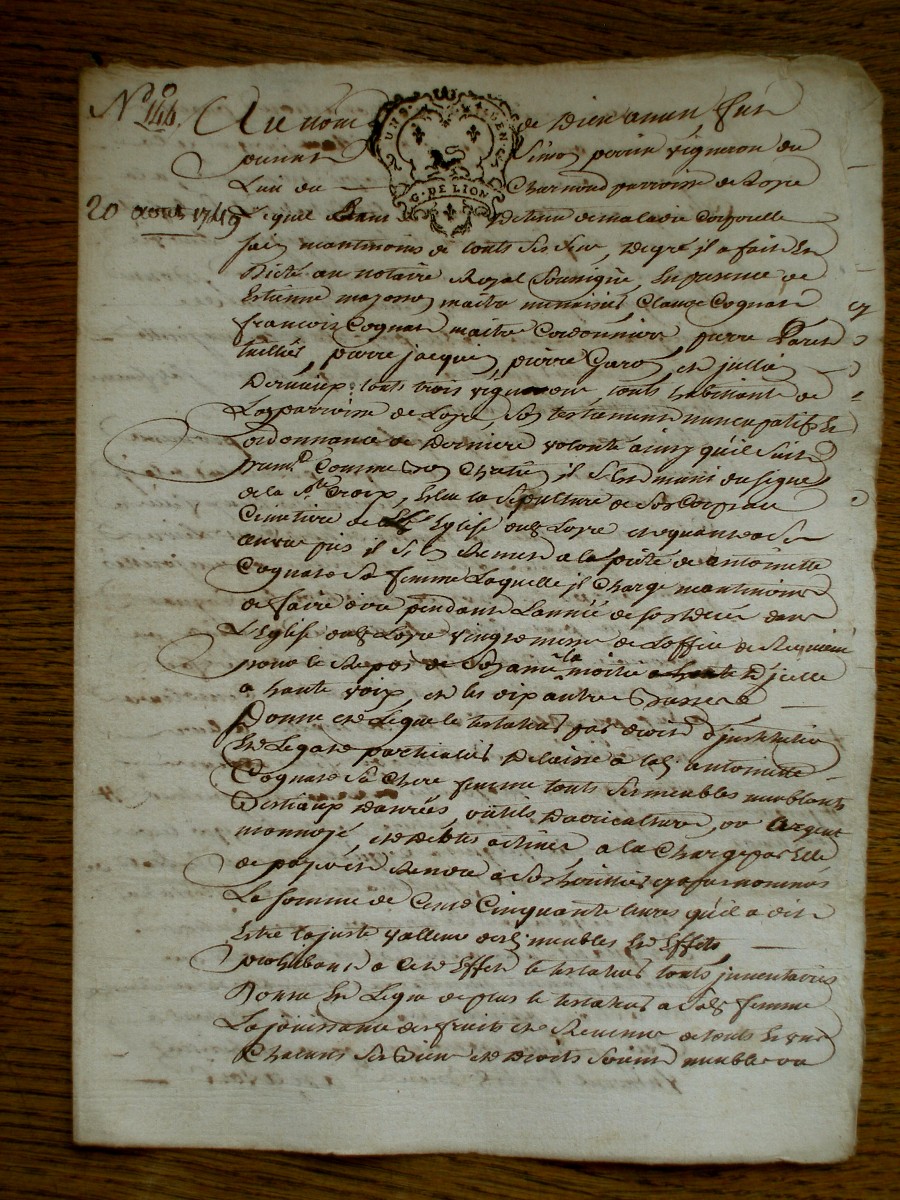 N° 146.
Au nom de Dieu amen fut
present Simo perrin vigneron du
Lieu du Charmond parroisse de Loyre
20 aoust 1749
Lequel Estant detenu de maladie Corporelle
sain neantmoins de touts ses sens, de gré il a fait et
Dicté au notaire Royal Soussigné, En presence de
Estienne mazono, maitre menuisier Claude Cognard
françois Cognard maitre Cordonnier, pierre Paret
tuillier, pierre jacquin, pierre et jullien
Dernieux, touts trois vignerons, touts habitants de
La parroisse de Loyre, Son testament nuncupatif Et
ordonnance de Derniere volonté ainsy qu'il suit
premt. Comme bon Chretien il s'est muni du signe
de la Ste. Croix, Elu la Sepulture de Son Corps au
Cimetiere de L'Eglise dud. Loyre et quant a Son
œuvre pis il s'en Remet a la pieté de antoinette
Cognard Sa femme Laquelle il Charge neantmoins
de faire dire pendant L'année de son decés dans
L'Eglise dud. Loyre vingt messes de L'office de Requiem
pour le Repos de Son ame la moitié d'jcelle
a haute voix, et les dix autres Basses
Donne et Legue le testateur par droit d'jnstitution
Et Legat particulier Delaisse a lad. antoinette
Cognard Sa Chere femme touts Ses meubles meublants
Bestiaux Danrées, outils D'agriculture, or Argent
monnoyé, et debtes actives, a la Charge par Elle
de payer et Rendre a Ses heritiers cy après nommés
La somme de Cent Cinquante livres qu'il a dit
Estre la juste valleur desd. meubles Et Effets
prohibant a Cet Effet le testateur touts jnventaires
Donne Et Legue de plus le testateur a Sad. femme
La joüissance des fruits et Revenus de touts Et uns
Chacuns Ses Biens et Droits Soient meubles ou